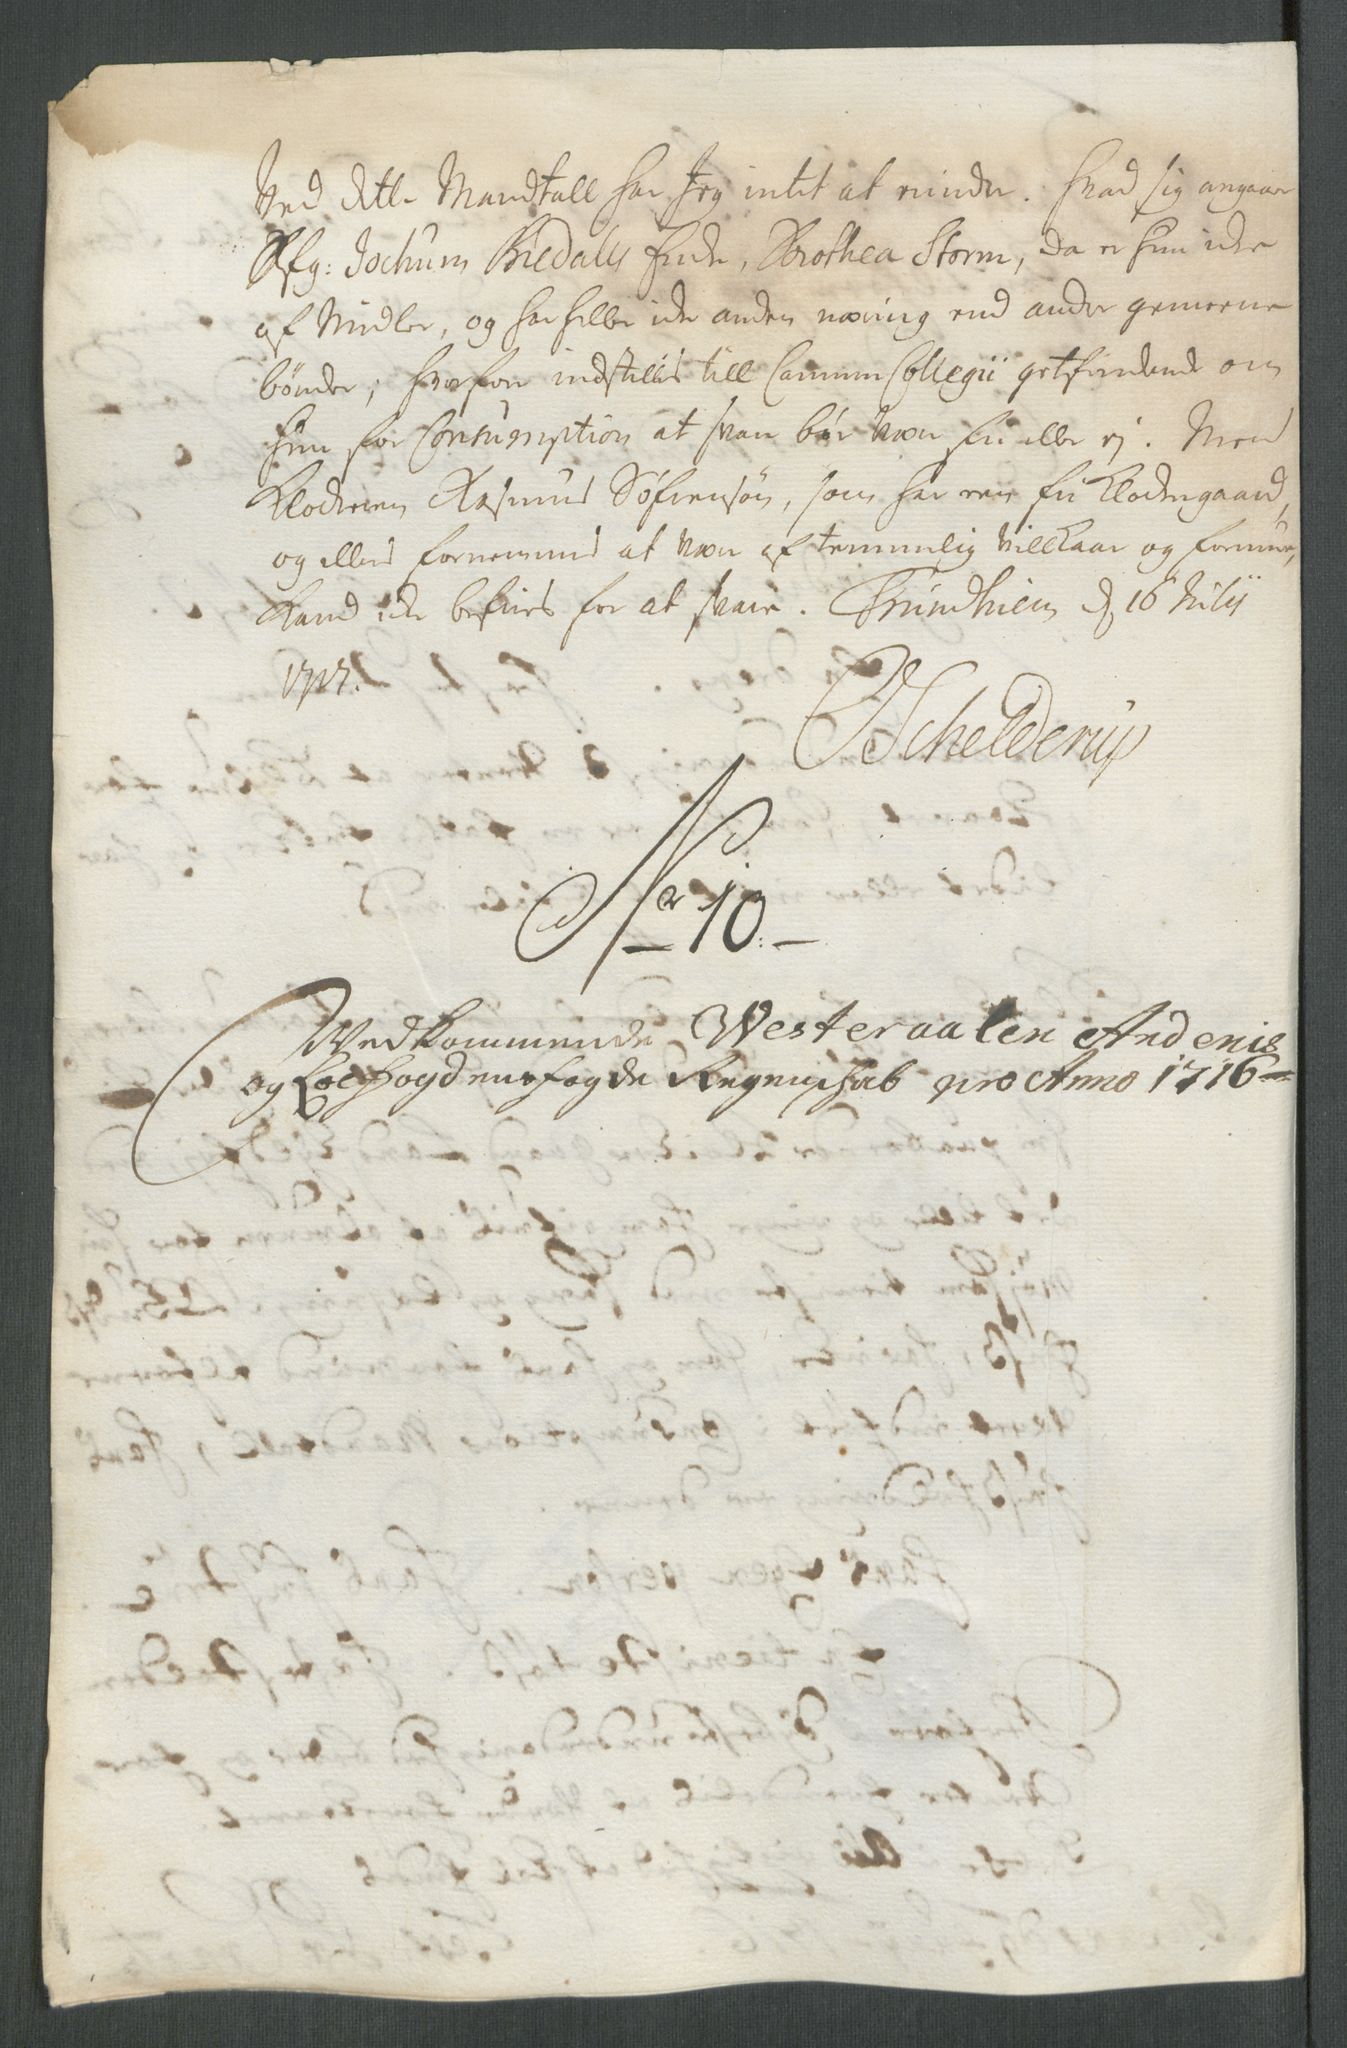 Ved dette Mandtall har Jeg intet at minde. hvad sig angaar
Sl: Jochum Biedahls Encke, Dorothea Storm, da er hun icke
af Midler, og har heller icke anden næring end andre gemeene
bønder; hvorfore indstilles till Cammer Collegii gotfindende om
hun for Consumption at svare bør være fri eller ej. Men
Klockeren Rasmus Søfrensøn, som har een fri Klockergaard,
og ellers fornemmes at være af temmelig villkaar og formue,
kand icke befries for at svare. Trundhiem d 16 Julij
1717.
Schelderup
No 10.
Vedkommende Westeraalen Andenis
og Lofhogdens fogde Regenschab pro Anno 1716